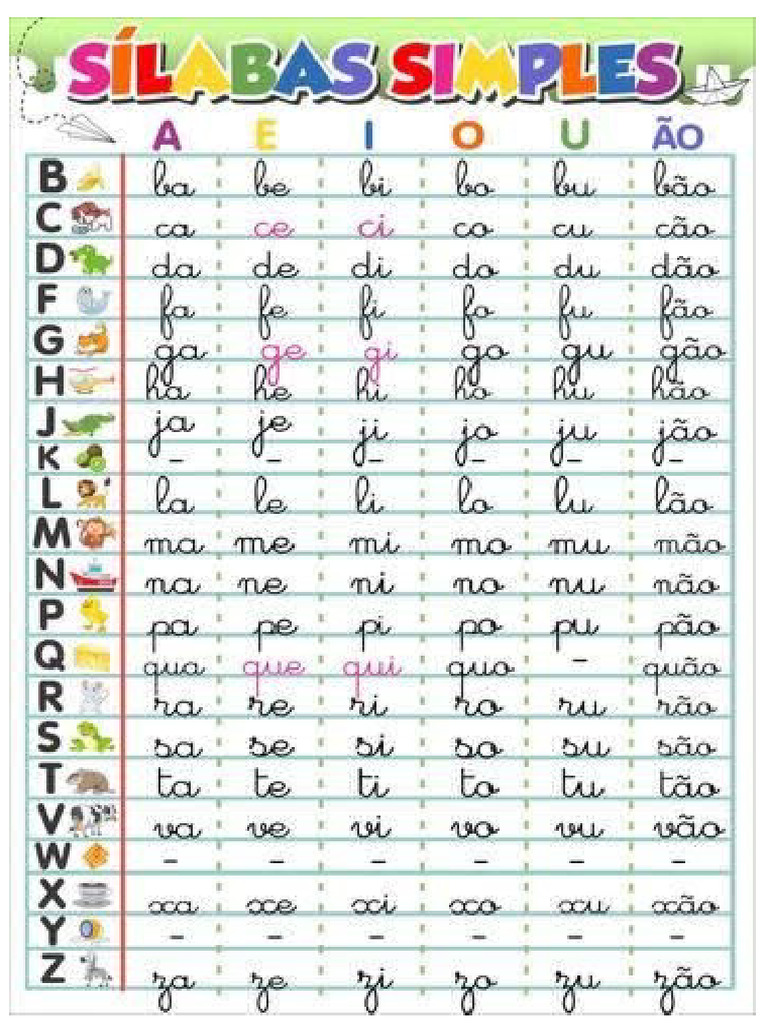 SÍLABAS SIMPLES
A E I O U ÃO
B ba be bi bo bu bão
C ca ce ci co cu cão
D da de di do du dão
F fa fe fi fo fu fão
G ga ge gi go gu gão
H ha he hi ho hu hão
J ja je ji jo ju jão
K – – – – – –
L la le li lo lu lão
M ma me mi mo mu mão
N na ne ni no nu não
P pa pe pi po pu pão
Q qua que qui quo – quão
R ra re ri ro ru rão
S sa se si so su são
T ta te ti to tu tão
V va ve vi vo vu vão
W – – – – – –
X xa xe xi xo xu xão
Y – – – – – –
Z za ze zi zo zu zão